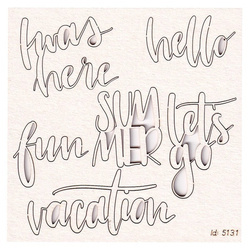 I was
here
hello
SUM
MER
fun
let's
go
vacation
Id: 5131